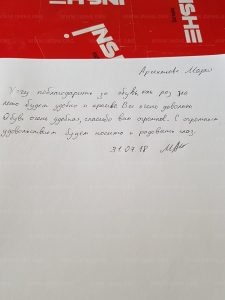 INSHE
INSHE
Хочу поблагодарить за обувь, как раз это
лето будет удобно и красиво. Все очень довольны
Обувь очень удобная, спасибо вам огромное. С огромным
удовольствием будем носить и радовать глаз.
31.07.18